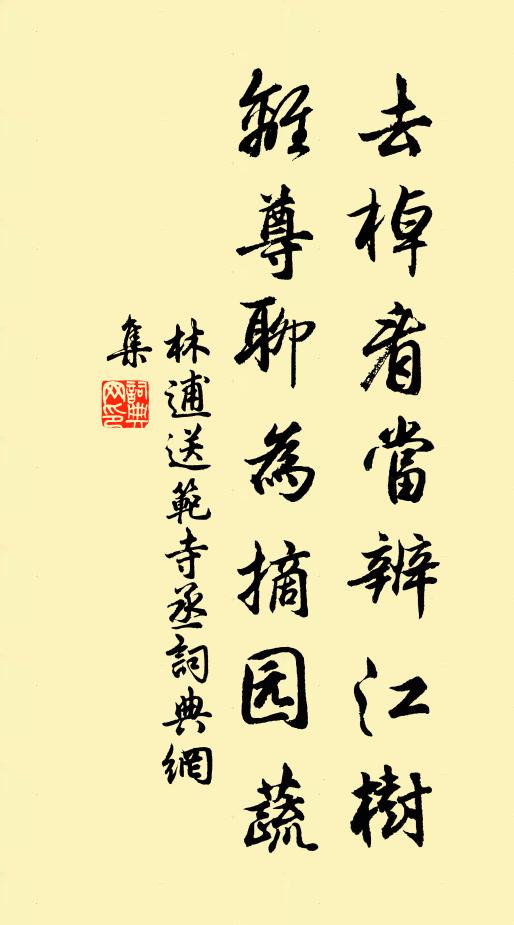 去棹看當辨江樹
離尊聊為摘园蔬
林逋送範寺丞詞典網
集
詞典网印